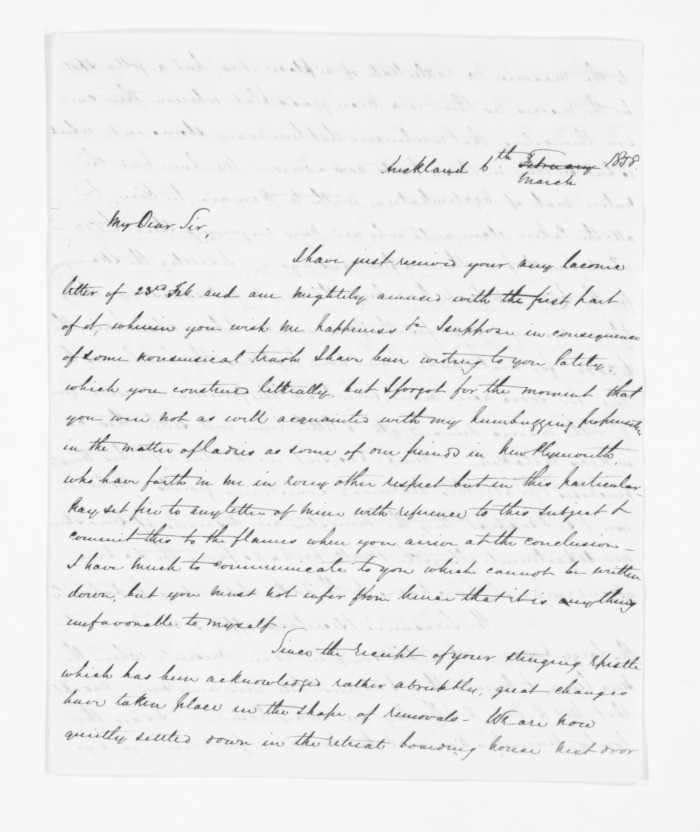 Auckland 6th February 1858
March
My Dear Sir,
I have just received your very laconic
letter of 23rd Feb. and am mightily amused with the first part
of it, wherein you wish me happiness &c I suppose in consequence
of some nonsensical trash I have been writing to you lately,
which you construed litterally, but I forgot for the moment that
you were not as well acquainted with my humbugging propensities
in the matter of ladies as some of our friends in New Plymouth
who have faith in me in every other respect but in this particular.
Pray set fire to any letter of mine with reference to this subject &
commit this to the flames when you arrive at the conclusion –
I have much to communicate to you which cannot be written
down, but you must not infer from hence that it is anything
unfavorable to myself.
Since the receipt of your stinging Epistle
which has been acknowledged rather abruptly, great changes
have taken place in the shape of removals – We are now
quietly settled down in the retreat boarding house next door